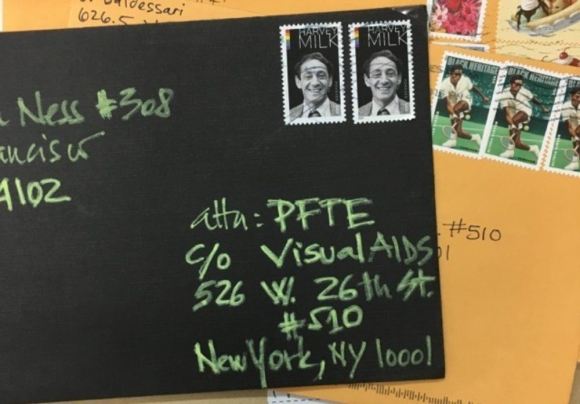 Baldessari
626.5
HARVEY
MILK
HARVEY
MILK
BLACK HERITAGE
BLACK HERITAGE
Ness #308
94102
attn: PFTE
c/o Visual AIDS
526 W. 26th St.
#510
New York, NY 10001
#510